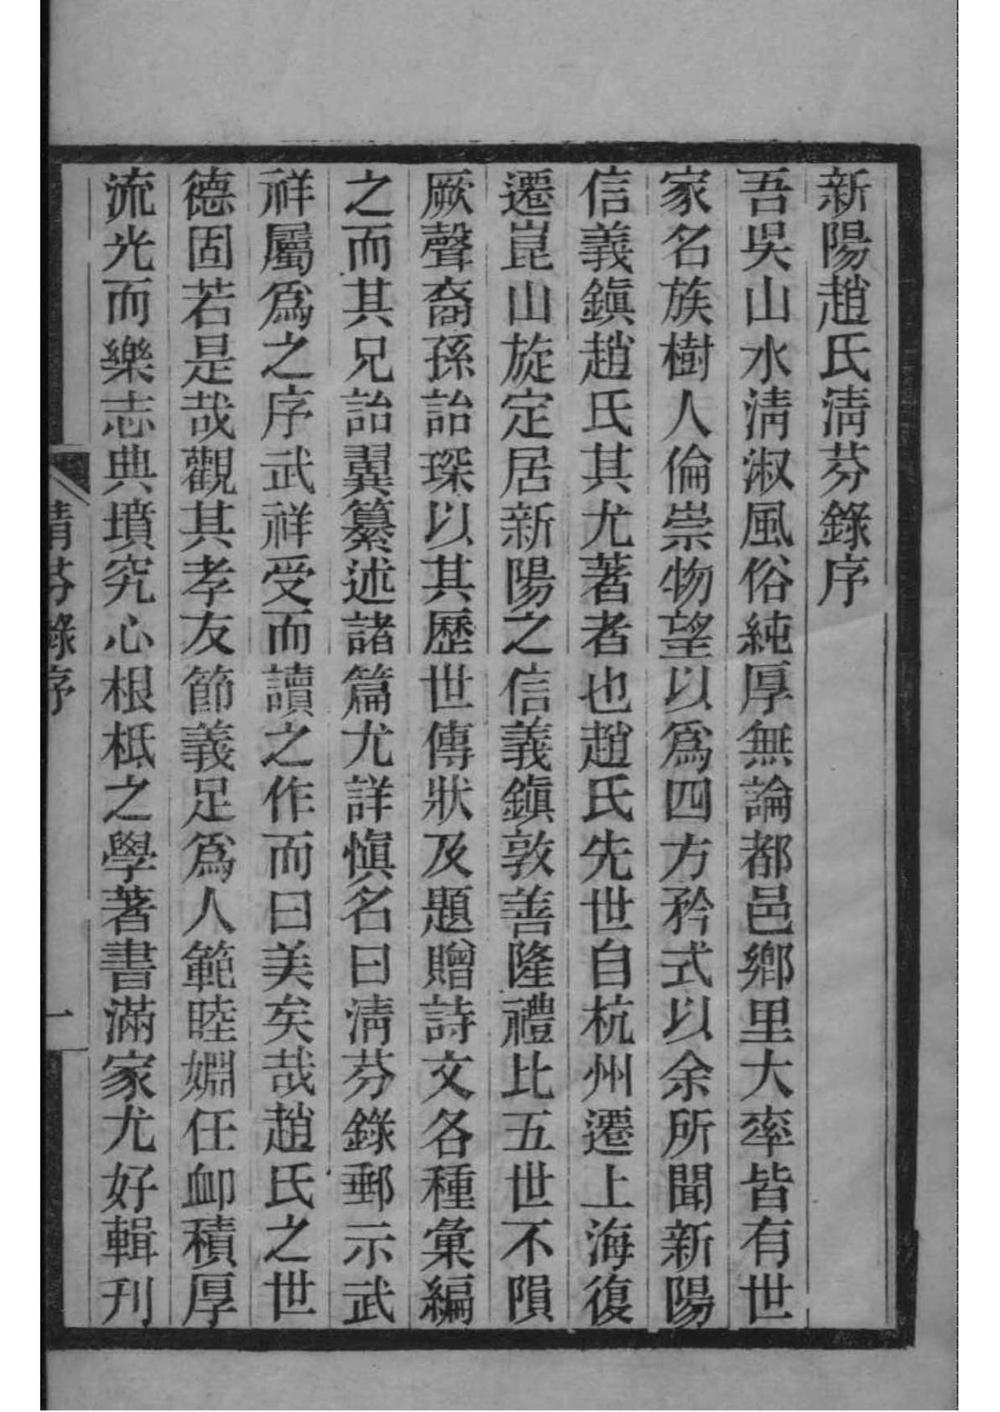 新陽趙氏淸芬錄序
吾吳山水淸淑風俗純厚無論都邑鄉里大率皆有世
家名族樹人倫崇物望以爲四方矜式以余所聞新陽
信義鎭趙氏其尤著者也趙氏先世自杭州遷上海復
遷崑山旋定居新陽之信義鎭敦善隆禮比五世不隕
厥聲裔孫詒琛以其歷世傳狀及題贈詩文各種彙編
之而其兄詒翼纂述諸篇尤詳愼名曰淸芬錄郵示武
祥屬爲之序武祥受而讀之作而曰美矣哉趙氏之世
德固若是哉觀其孝友節義足爲人範睦婣任卹積厚
流光而樂志典墳究心根柢之學著書滿家尤好輯刊
清芬錄序
一